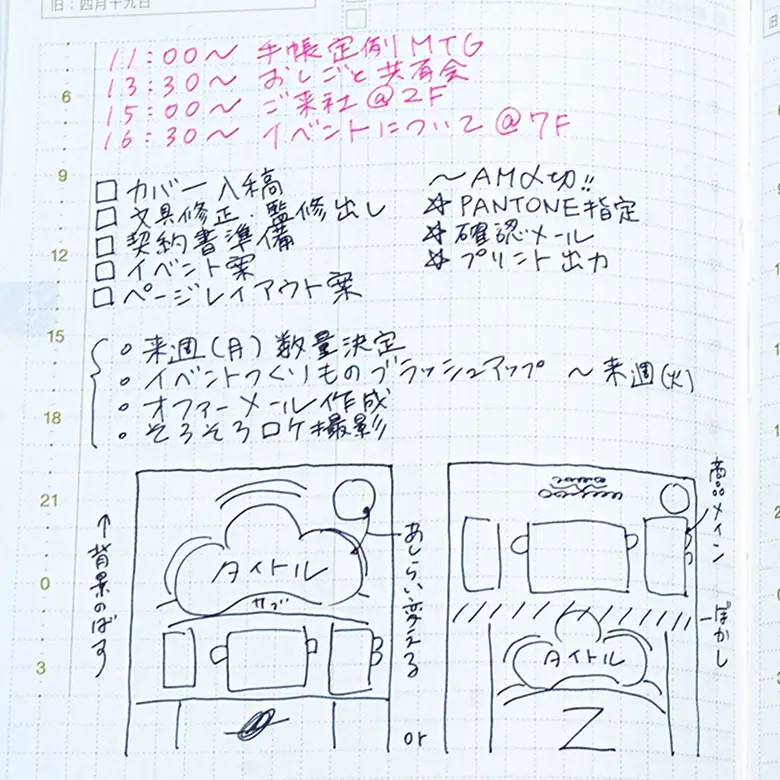 旧:四月十九日
11:00〜 手帳定例MTG
13:30〜 おしごと共有会
15:00〜 ご来社@2F
16:30〜 イベントについて@7F
□ カバー入稿
□ 文具修正・監修出し
□ 契約書準備
□ イベント案
□ ページレイアウト案
〜AM〆切!!
☆ PANTONE指定
☆ 確認メール
☆ プリント出力
○ 来週(月)数量決定
・ イベントつくりものブラッシュアップ 〜来週(火)
・ オファーメール作成
・ そろそろロケ撮影
6
9
12
15
18
21
0
3
↑背景のばす
タイトル
サブ
あしらい変える
or
商品メイン
ぼかし
タイトル